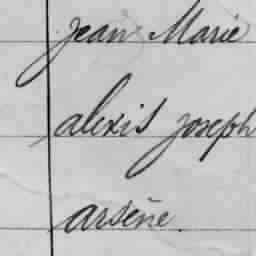 Jean Marie
alexis Joseph
arsène.